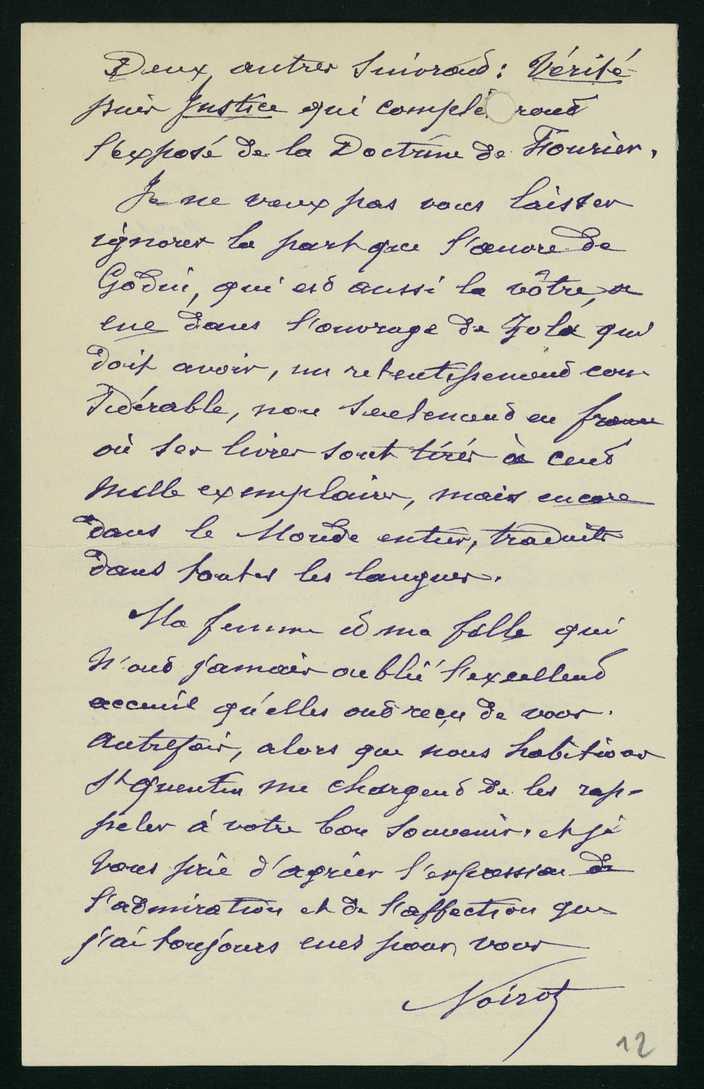 Deux autres suivront : Vérité
puis Justice qui complé ront
l'exposé de la Doctrine de Fourier.
Je ne veux pas vous laisser
ignorer la part que l'œuvre de
Godin, qui est aussi la vôtre, a
eue dans l'ouvrage de Zola qui
doit avoir, un retentissement con
sidérable, non seulement en france
où ses livres sont tirés à cent
mille exemplaires, mais encore
dans le Monde entier, traduits
dans toutes les langues.
Ma femme et ma fille qui
n'ont jamais oublié l'excellent
accueil qu'elles ont reçu de vous
autrefois, alors que nous habitions
St Quentin me chargent de les rap-
peler à votre bon souvenir, et je
vous prie d'agréer l'expression de
l'admiration et de l'affection que
j'ai toujours eues pour vous
Noirot
12